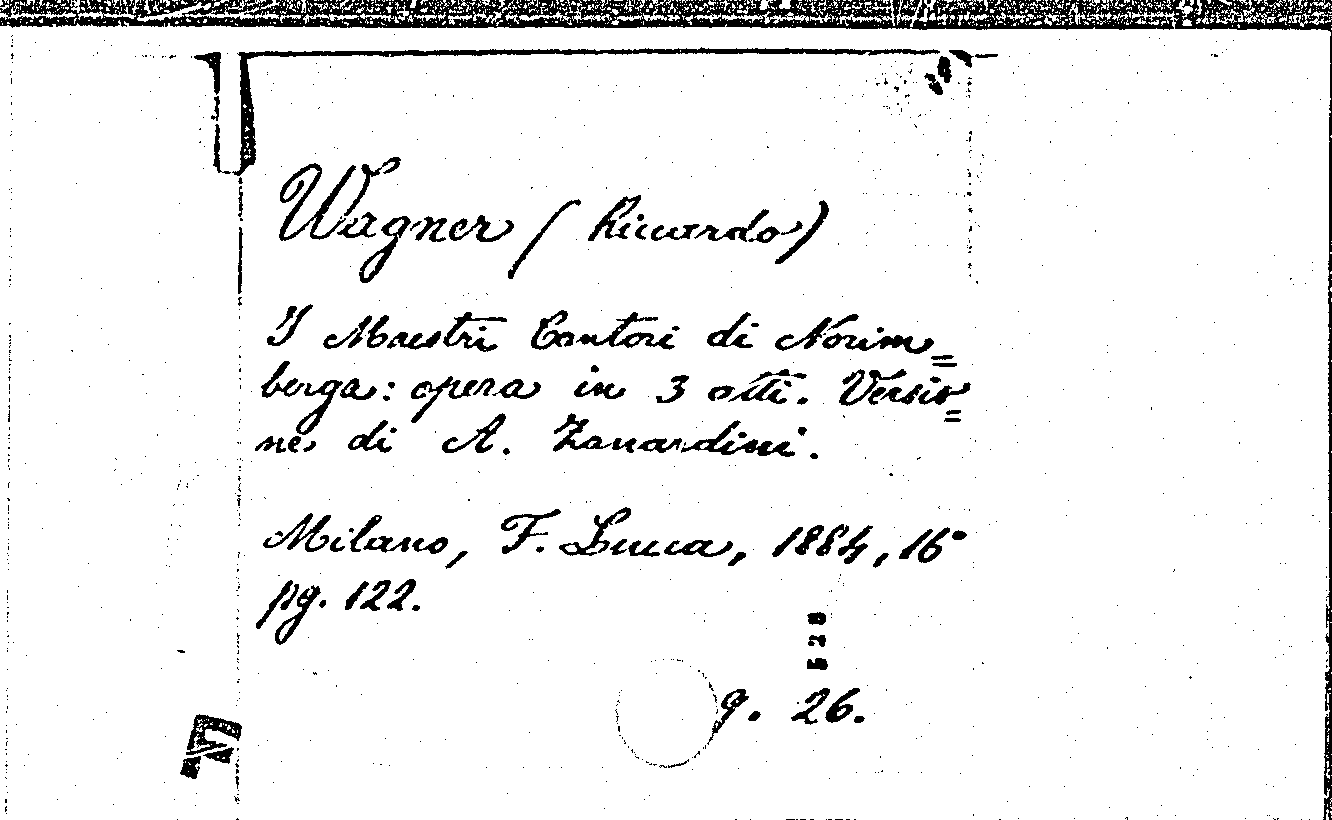 Wagner (Riccardo)
I Maestri Cantori di Norim=
berga: opera in 3 atti. Versio=
ne di A. Zanardini.
Milano, F. Lucca, 1884, 16°
pg. 122.
528
9. 26.
F